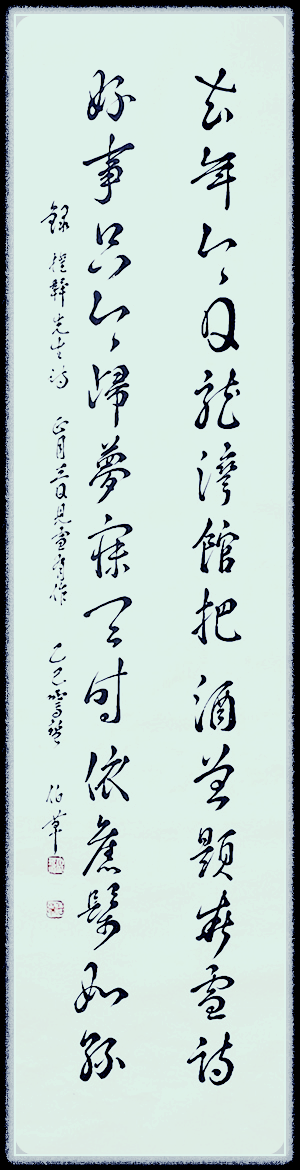 去年今日龍灣館把酒題春雪詩
好事只今歸夢寐天時依舊鬢如絲
錄 權韠先生詩 正月三日見雪有作 乙巳驚蟄 伯